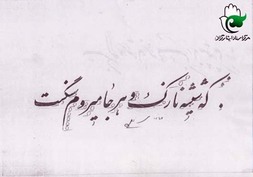 که شیشه نازک و هر جا میروم سنگست